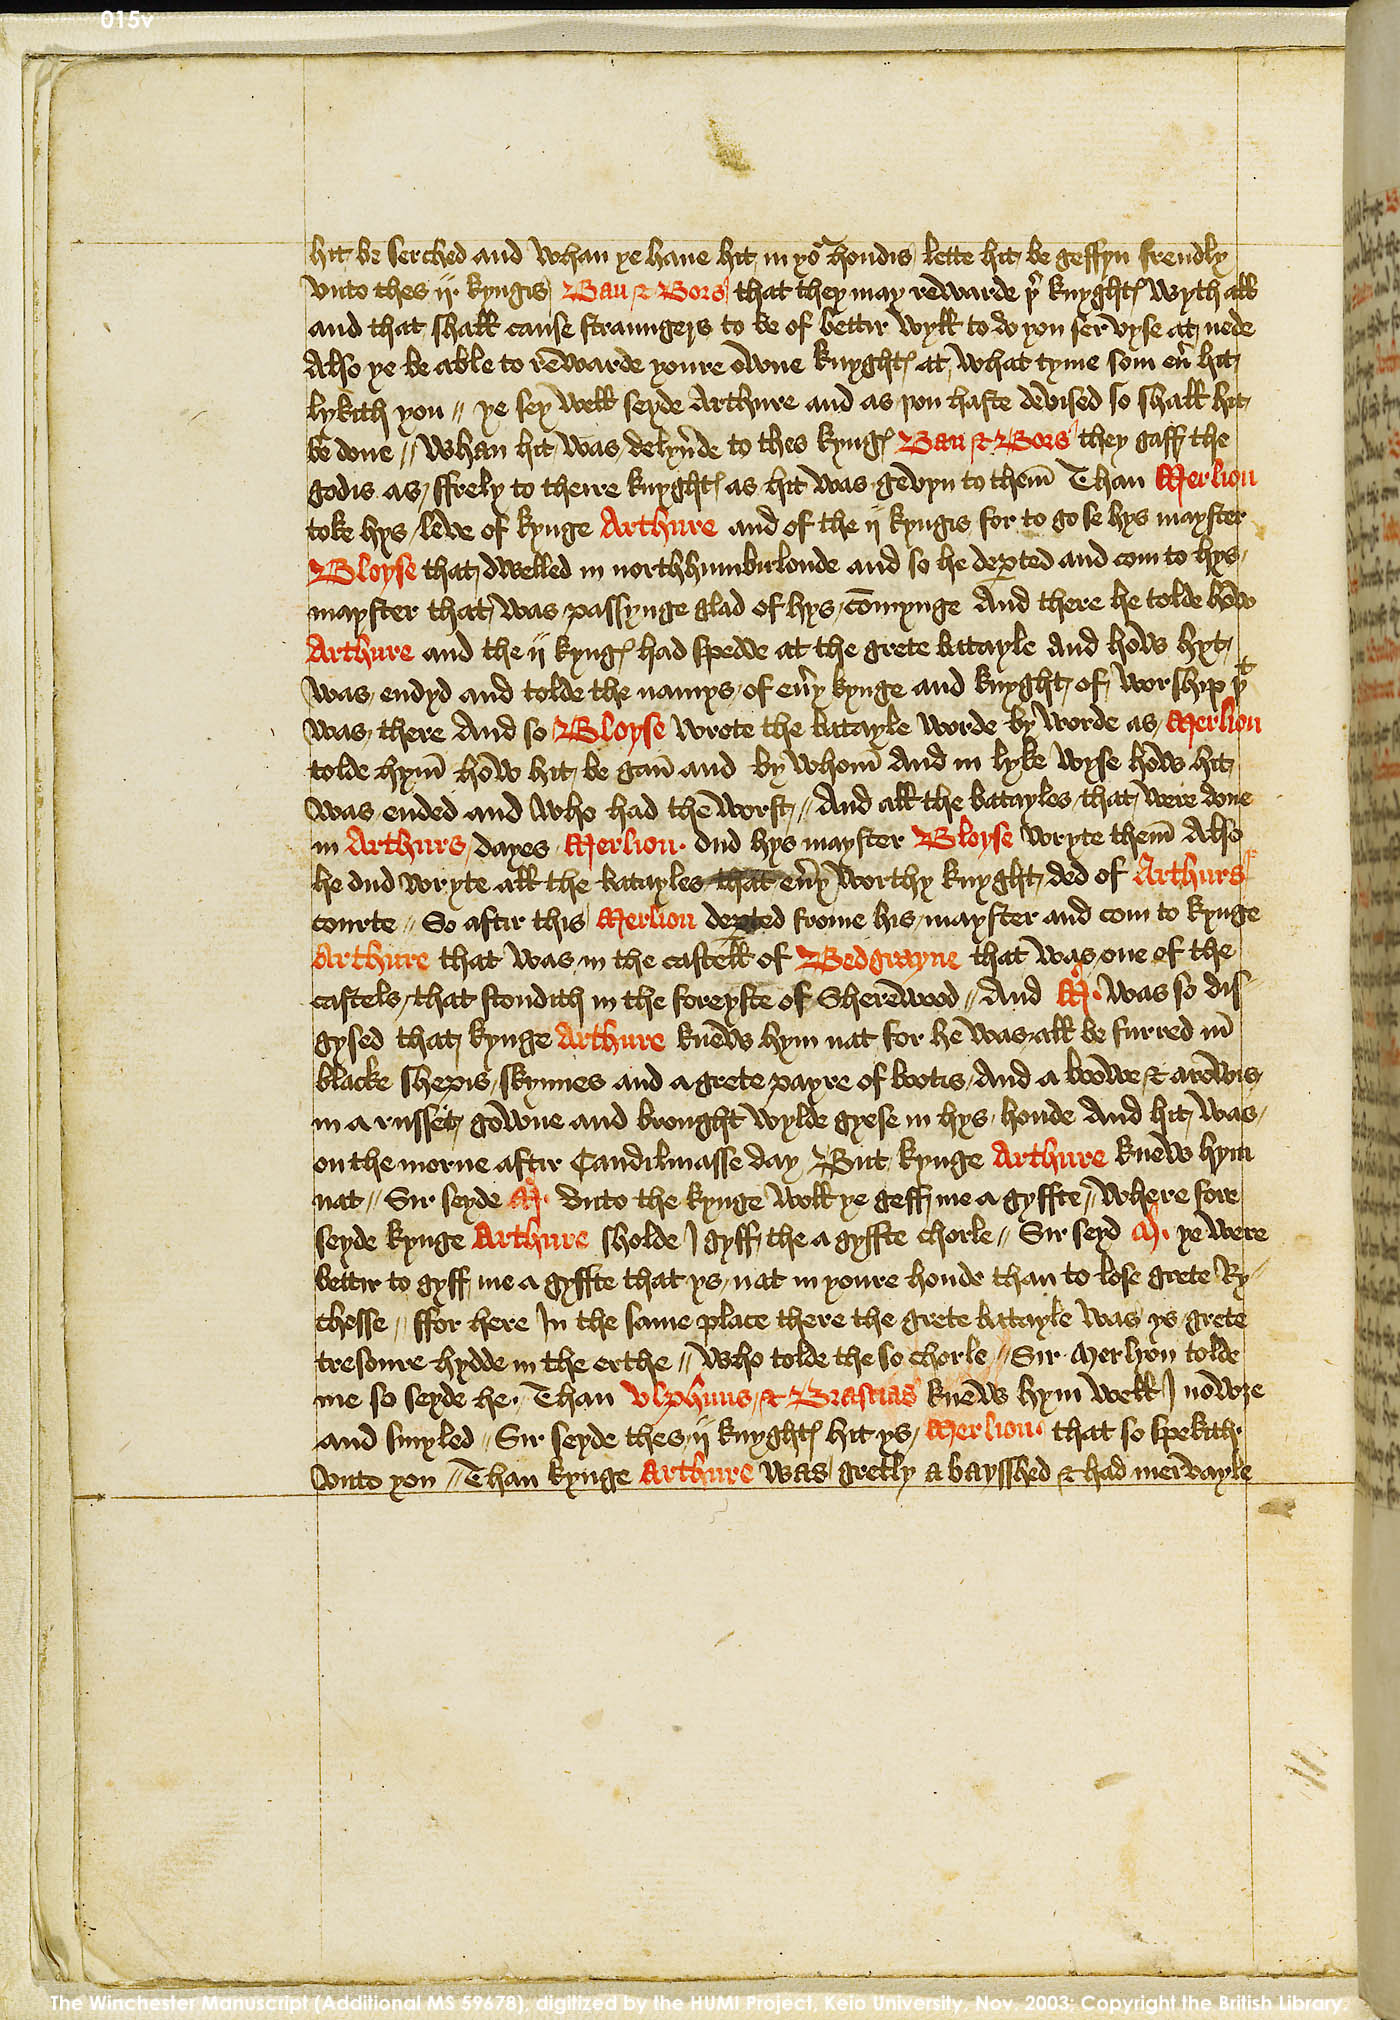 015v
hit be serched and whan ye haue hit in yoʳ hondis lette hit be geffyn frendly
vnto thes ij kyngis Ban & Bors that they may rewarde þʳ knyghtꝭ wyth all
and that shall cause straungers to be of bettir wyll to do you servyse at nede
Also ye be able to rewarde youre owne knyghtꝭ at what tyme som eu̾ hit
lykith you // ye sey well seyde Arthure and as þou haste devised so shall hit
be done // Whan hit was delyu̾de to thes kyngꝭ Ban & Bors they gaff the
godis as ffrely to theire knyghtꝭ as hit was gevyn to them̄ Than Merlion
toke hys leve of kynge Arthure and of the ij kyngis for to go se hys mayster
Bloyse that dwelled in northhumbirlonde and so he deꝑted and com to hys
mayster that was passynge glad of hys co̅mynge And there he tolde how
Arthure and the ij kyngꝭ had spedde at the grete batayle And how hyt
was endyd and tolde the namys of eu̾y kynge and knyght of worshyp þᵗ
was there And so Bloyse wrote the batayle worde by worde as Merlion
tolde hym̄ how hit be gan̄ and by whom̄ And in lyke wyse how hit
was ended and who had the worst // And all the batayles that were done
in Arthurs dayes Merlion dud hys mayster Bloyse wryte them̄ Also
he dud wryte all the batayles that eu̾y worthy knyght ded of Arthurs
courte // So aftir this Merlion deꝑted frome his mayster and com to kynge
Arthure that was in the castell of Bedgrayne that was one of the
castels that stondith in the foreyste of Sherewood // And M. was so dis
gysed that kynge Arthure knew hym nat for he was all be furred in̄
blacke shepis skynnes and a grete payre of bootis And a boowe & arowis
in a russet gowne and brought wylde gyese in hys honde And hit was
on the morne aftir Candilmasse day But kynge Arthure knew hym
nat // Sir seyde M. vnto the kynge woll ye geff me a gyffte // Where fore
seyde kynge Arthure sholde I gyff the a gyffte chorle // Sir seyd M. ye were
bettir to gyff me a gyffte that ys nat in youre honde than to lose grete Ry
chesse // ffor here In the same place there the grete batayle was ys grete
tresoure hydde in the erthe // Who tolde the so chorle // Sir Merlyon tolde
me so seyde he. Than vlphuns & Brastias knew hym well I nowȝe
and smyled // Sir seyde thes ij knyghtꝭ hit ys Merlion that so spekith
vnto you // Than kynge Arthure was gretly a baysshed & had mervayle
The Winchester Manuscript (Additional MS 59678), digitized by the HUMI Project, Keio University, Nov. 2003; Copyright the British Library.